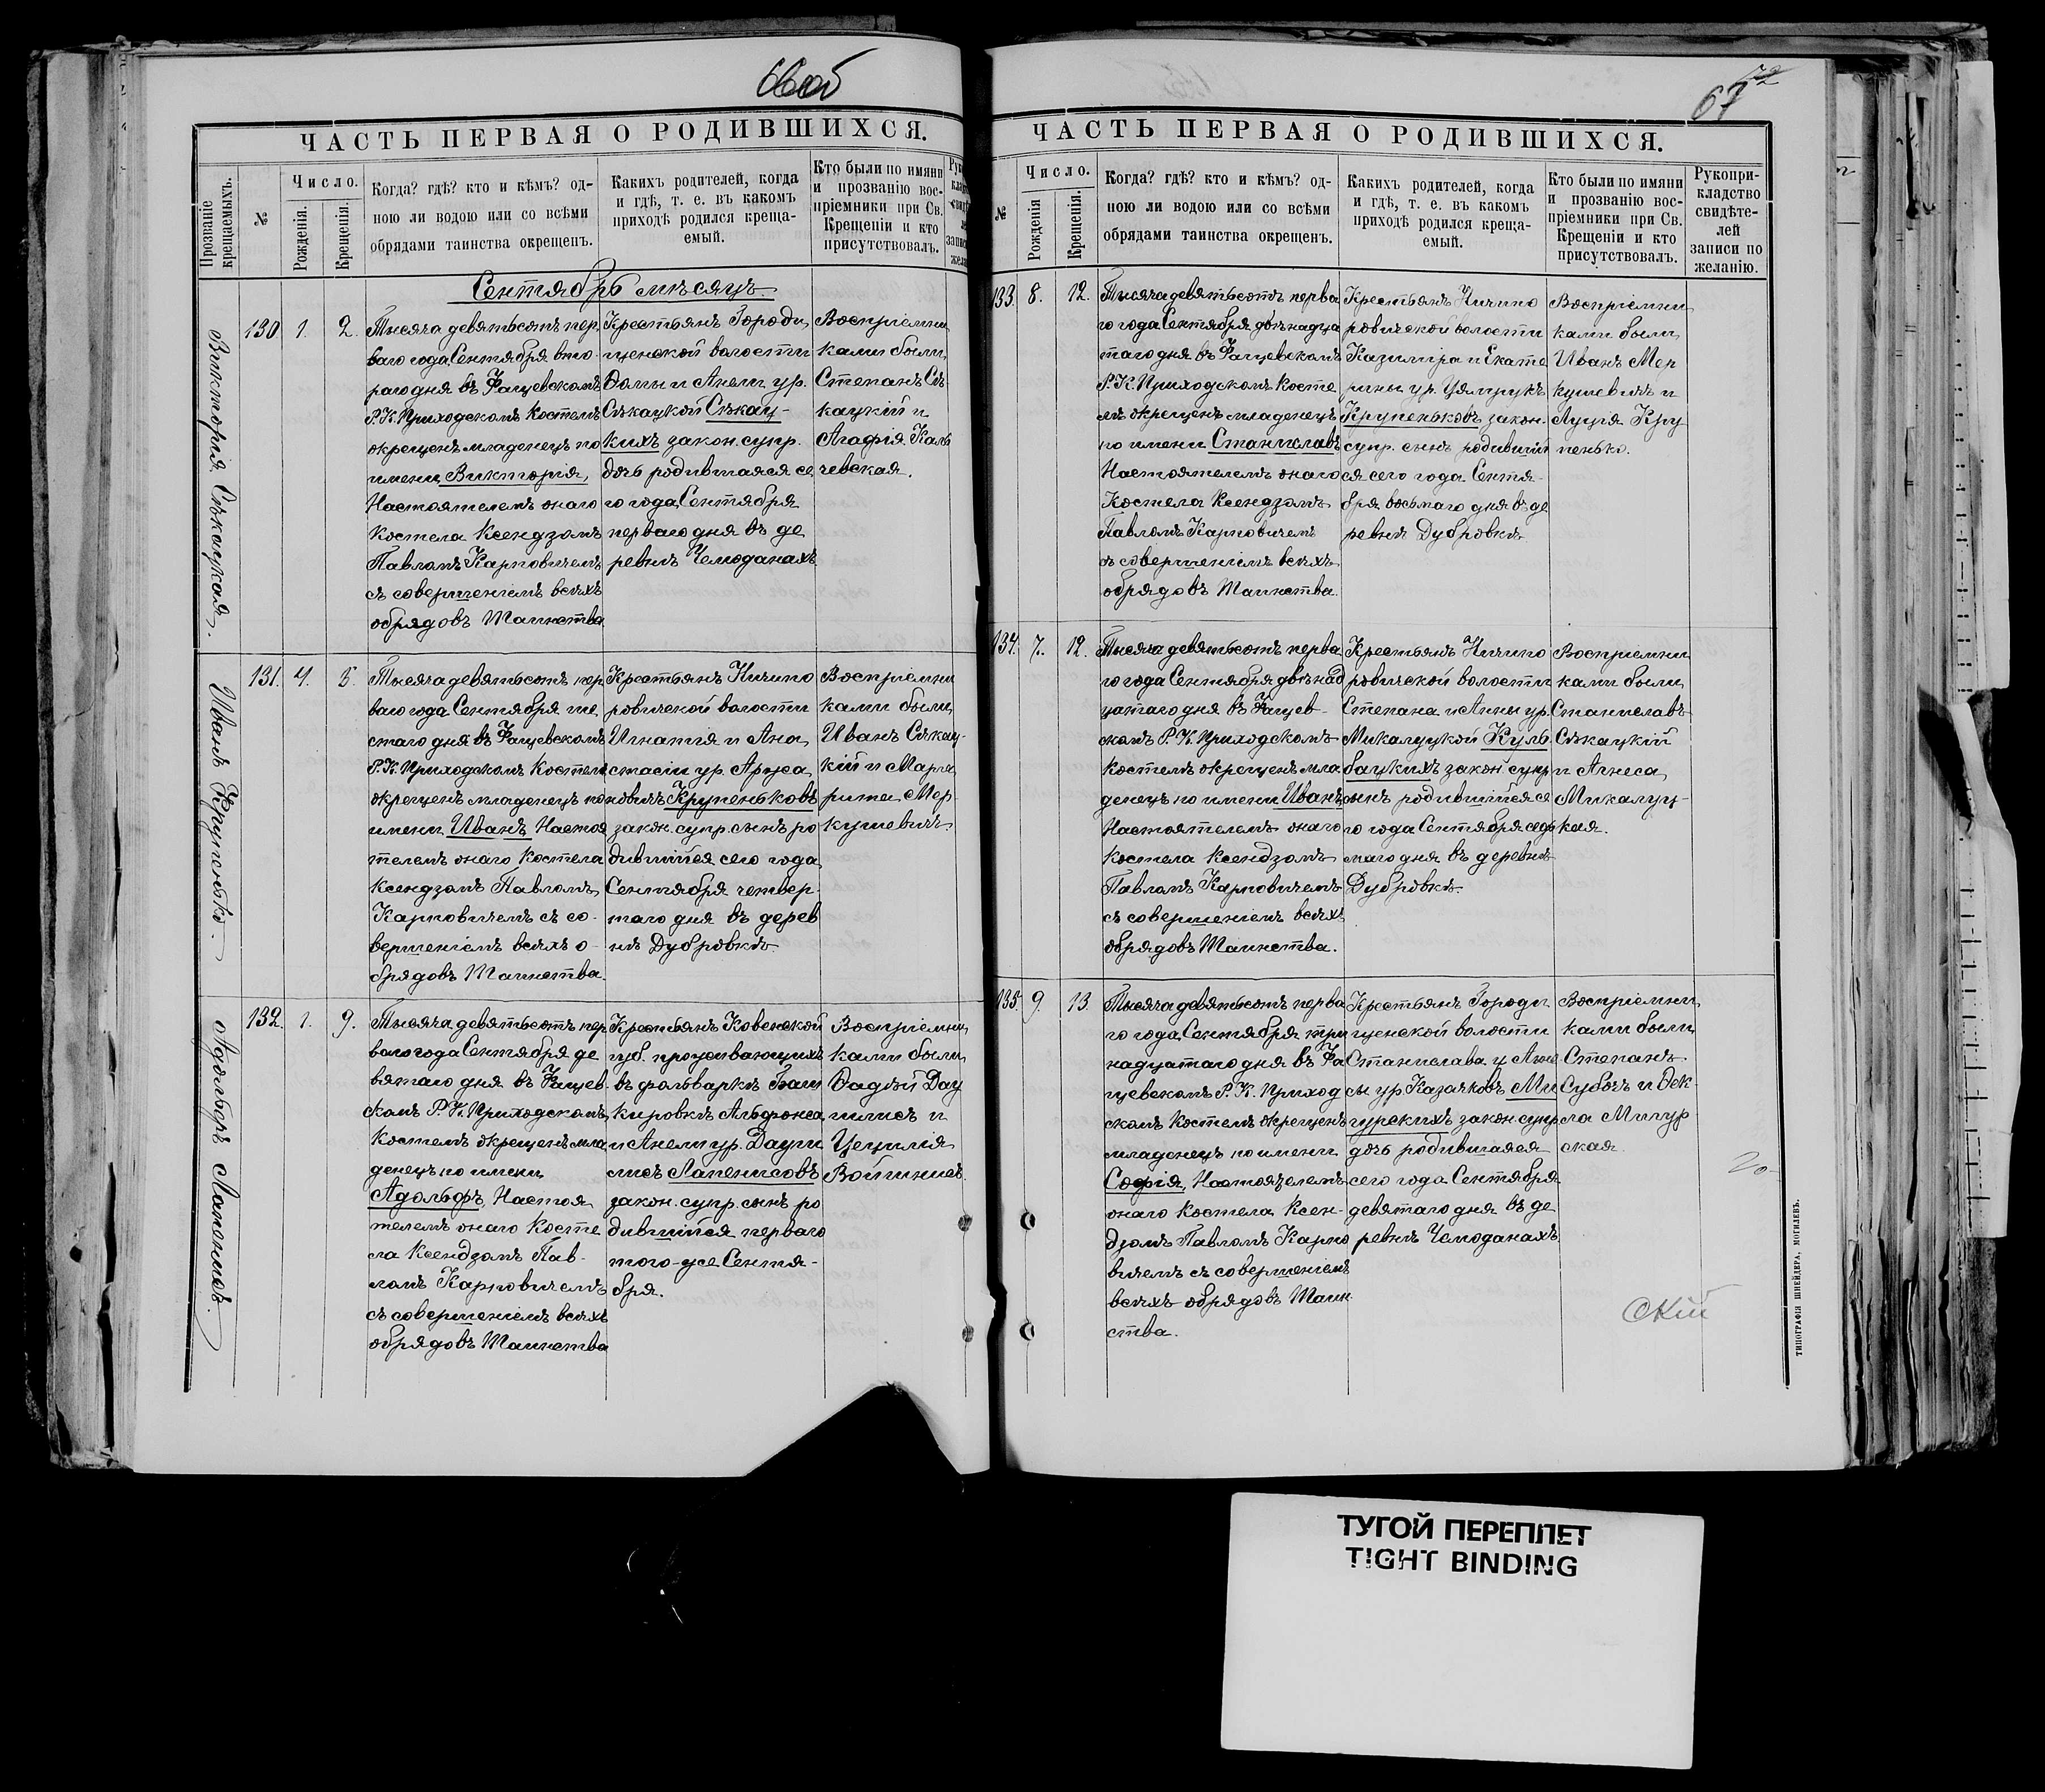 66об
ЧАСТЬ ПЕРВАЯ О РОДИВШИХСЯ.
Прозваніе крещаемыхъ.
№
Число.
Рожденія.
Крещенія.
Когда? гдѣ? кто и кѣмъ? од-
ною ли водою или со всѣми
обрядами таинства окрещенъ.
Какихъ родителей, когда
и гдѣ, т. е. въ какомъ
приходѣ родился креща-
емый.
Кто были по имяни
и прозванію вос-
пріемники при Св.
Крещеніи и кто
присутствовалъ.
Сентябрь мѣсяцъ.
Викторія Сѣкацкая.
130. 1. 2.
Тысяча девятьсотъ пер
ваго года Сентября вто-
раго дня въ Фащевскомъ
Р. К. Приходскомъ Костелѣ
окрещенъ младенецъ по
имени Викторія,
Настоятелемъ онаго
Костела Ксендзомъ
Павломъ Карповичемъ
съ совершеніемъ всѣхъ
обрядовъ Таинства
Крестьянъ Городи
щенской волости
Ѳомы и Анели ур.
Сѣкацкой Сѣкац-
кихъ закон. супр.
дочь родившаяся се
го года Сентября
перваго дня въ де
ревнѣ Чемоданахъ.
Воспріемни
ками были
Степанъ Сѣ
кацкій и
Агафія Каль
чевская.
Иванъ Крупенько.
131. 4. 5.
Тысяча девятьсотъ пер
ваго года Сентября ше
стаго дня въ Фащевскомъ
Р. К. Приходскомъ Костелѣ
окрещенъ младенецъ по
имени Иванъ Настоя
телемъ онаго Костела
Ксендзомъ Павломъ
Карповичемъ съ со-
вершеніемъ всѣхъ о-
брядовъ Таинства.
Крестьянъ Ничипо
ровичской волости
Игнатія и Ана
стасіи ур. Аржа
новичъ Крупеньковъ
закон. супр. сынъ ро
дившійся сего года
Сентября четвер-
таго дня въ дерев
нѣ Дубровкѣ.
Воспріемни
ками были
Иванъ Сѣкац-
кій и Марга
рита Мер-
кушевичъ
Адольфъ Лапенисъ.
132. 1. 9.
Тысяча девятьсотъ пер
ваго года Сентября де
вятаго дня въ Фащев-
скомъ Р. К. Приходскомъ
Костелѣ окрещенъ мла
денецъ по имени
Адольфъ, Настоя
телемъ онаго Косте
ла Ксендзомъ Пав-
ломъ Карповичемъ
съ совершеніемъ всѣхъ
обрядовъ Таинства
Крестьянъ Ковенской
губ. проживающихъ
въ фольваркѣ Баш
кировкѣ Альфонса
и Анели ур. Дауги
лисъ Лапенисовъ
закон. супр. сынъ ро
дившійся перваго
того-же Сентя-
бря.
Воспріемни
ками были
Ѳадѣй Дау
гилисъ и
Цецилія
Войшнисъ.
67
72
ЧАСТЬ ПЕРВАЯ О РОДИВШИХСЯ.
№
Число.
Рожденія
Крещенія.
Когда? гдѣ? кто и кѣмъ? од-
ною ли водою или со всѣми
обрядами таинства окрещенъ.
Какихъ родителей, когда
и гдѣ, т. е. въ какомъ
приходѣ родился креща-
емый.
Кто были по имяни
и прозванію вос-
пріемники при Св.
Крещеніи и кто
присутствовалъ.
Рукопри-
кладство
свидѣте-
лей
записи по
желанію.
133. 8. 12.
Тысяча девятьсотъ перва
го года Сентября двѣнадца
таго дня въ Фащевскомъ
Р. К. Приходскомъ Косте
лѣ окрещенъ младенецъ
по имени Станиславъ
Настоятелемъ онаго
Костела Ксендзомъ
Павломъ Карповичемъ
съ совершеніемъ всѣхъ
обрядовъ Таинства.
Крестьянъ Ничипо
ровичской волости
Казимира и Екате
рины ур. Цямрукъ
Крупеньковъ закон.
супр. сынъ родивший
ся сего года Сентя-
бря восьмаго дня въ де
ревнѣ Дубровкѣ
Воспріемни
ками были
Иванъ Мер
кушевичъ и
Луція Кру
пенько.
134. 7. 12.
Тысяча девятьсотъ перва
го года Сентября двѣнад
цатаго дня въ Фащев-
скомъ Р. К. Приходскомъ
Костелѣ окрещенъ мла
денецъ по имени Иванъ
Настоятелемъ онаго
Костела Ксендзомъ
Павломъ Карповичемъ
съ совершеніемъ всѣхъ
обрядовъ Таинства.
Крестьянъ Ничипо
ровичской волости
Степана и Анны ур.
Микалуцкой Куль-
бацкихъ закон. супр
сынъ родившійся се
го года Сентября седь
маго дня въ деревнѣ
Дубровкѣ.
Воспріемни
ками были
Станиславъ
Сѣкацкій
и Агнеса
Микалуц-
кая.
135. 9. 13.
Тысяча девятьсотъ перва
го года Сентября три
надцатаго дня въ Фа
щевскомъ Р. К. Приход
скомъ Костелѣ окрещенъ
младенецъ по имени
Софія, Настоятелемъ
онаго Костела Ксен-
дзомъ Павломъ Карпо
вичемъ съ совершеніемъ
всѣхъ обрядовъ Таин
ства.
Крестьянъ Городи
щенской волости
Станислава и Ане
сы ур. Казачковъ Ми
гурскихъ закон. супр
дочь родившаяся
сего года Сентября
девятаго дня въ де
ревнѣ Чемоданахъ.
Воспріемни
ками были
Степанъ
Субочъ и Ѳек
ла Мигур
ская
скій
ТИПОГРАФІЯ ШНЕЙДЕРА, МОГИЛЕВЪ.
ТУГОЙ ПЕРЕПЛЕТ
TIGHT BINDING